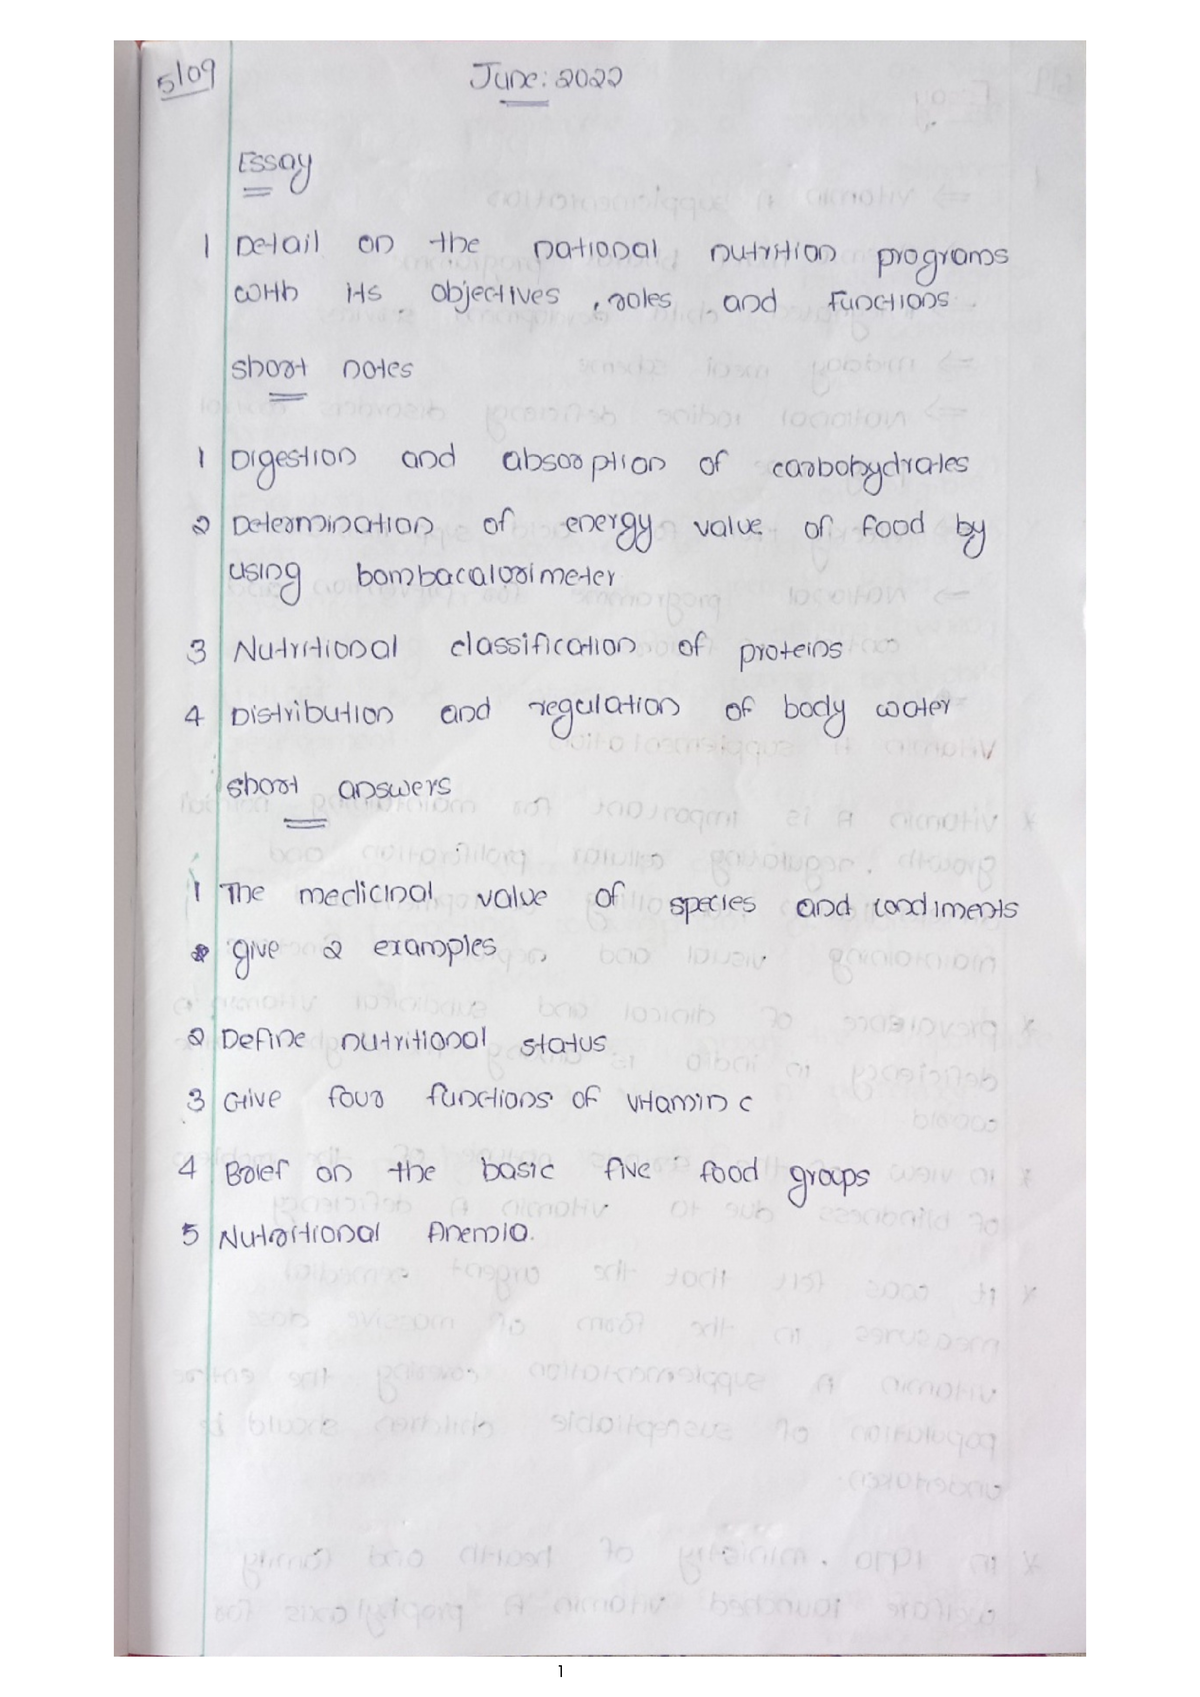 5/09
June: 2022
Essay
1 Detail on the national nutrition programs
with its objectives, roles and functions.
short notes
1 Digestion and absorption of carbohydrates
2 Determination of energy value of food by
using bombacalorimeter
3 Nutritional classification of proteins
4 Distribution and regulation of body water
short answers
1 The medicinal value of species and condiments
give 2 examples
2 Define nutritional status
3 Give four functions of vitamin c
4 Brief on the basic five food groups
5 Nutritional Anemia.
1